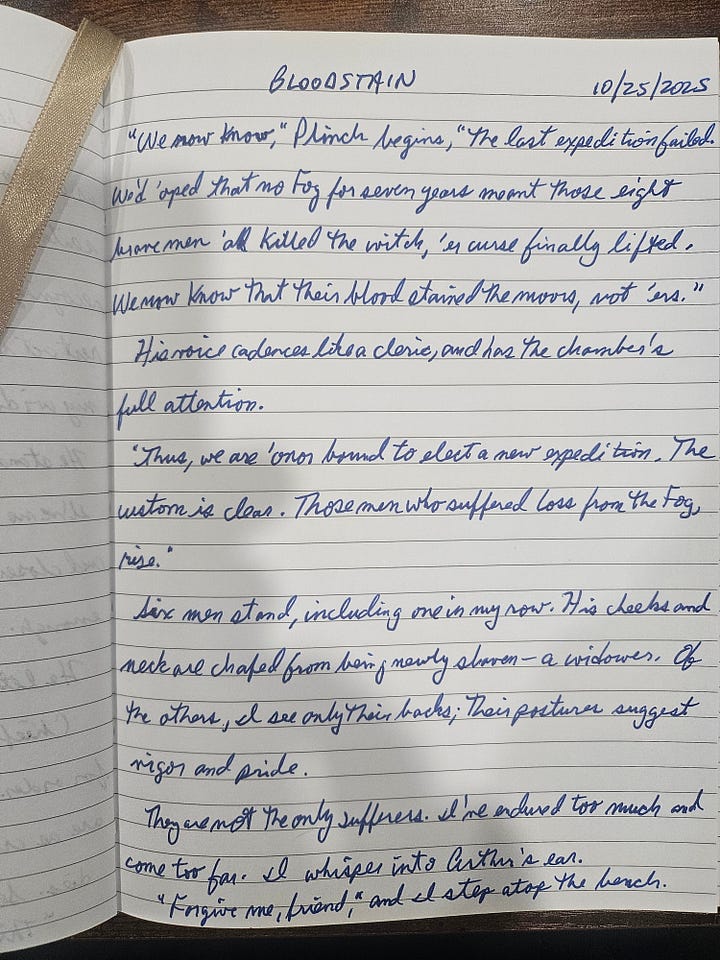 BLOODSTAIN 10/25/2025
"We now know," Plinch begins, "the last expedition failed.
We'd 'oped that no Fog for seven years meant those eight
brave men 'ad killed the witch, 'er curse finally lifted.
We now know that their blood stained the moors, not 'ers."
His voice cadences like a cleric, and has the chamber's
full attention.
"Thus, we are 'onor bound to elect a new expedition. The
custom is clear. Those men who suffered loss from the Fog,
rise."
Six men stand, including one in my row. His cheeks and
neck are chafed from being newly shaven – a widower. Of
the others, I see only their backs; their postures suggest
vigor and pride.
They are not the only sufferers. I've endured too much and
come too far. I whisper into Arthr's ear.
"Forgive me, friend," and I step atop the bench.